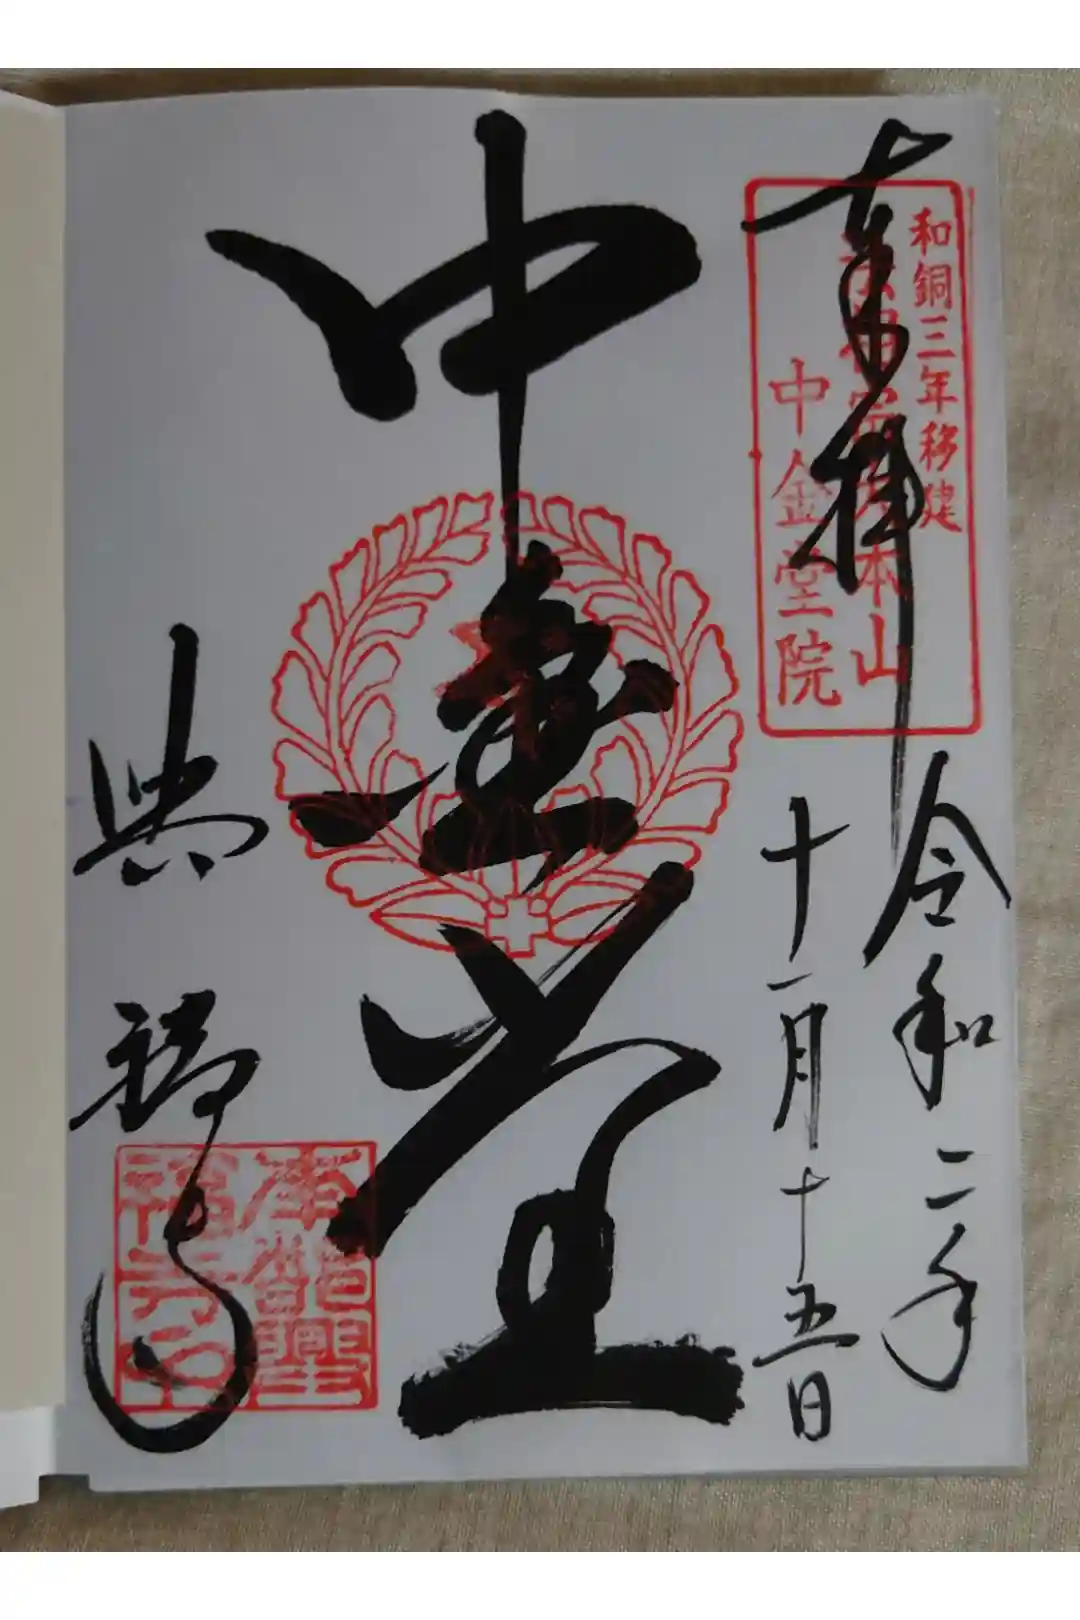 奉拝
和銅三年移建
法相宗大本山
中金堂院
令和二年
十一月十五日
中金堂
興福寺